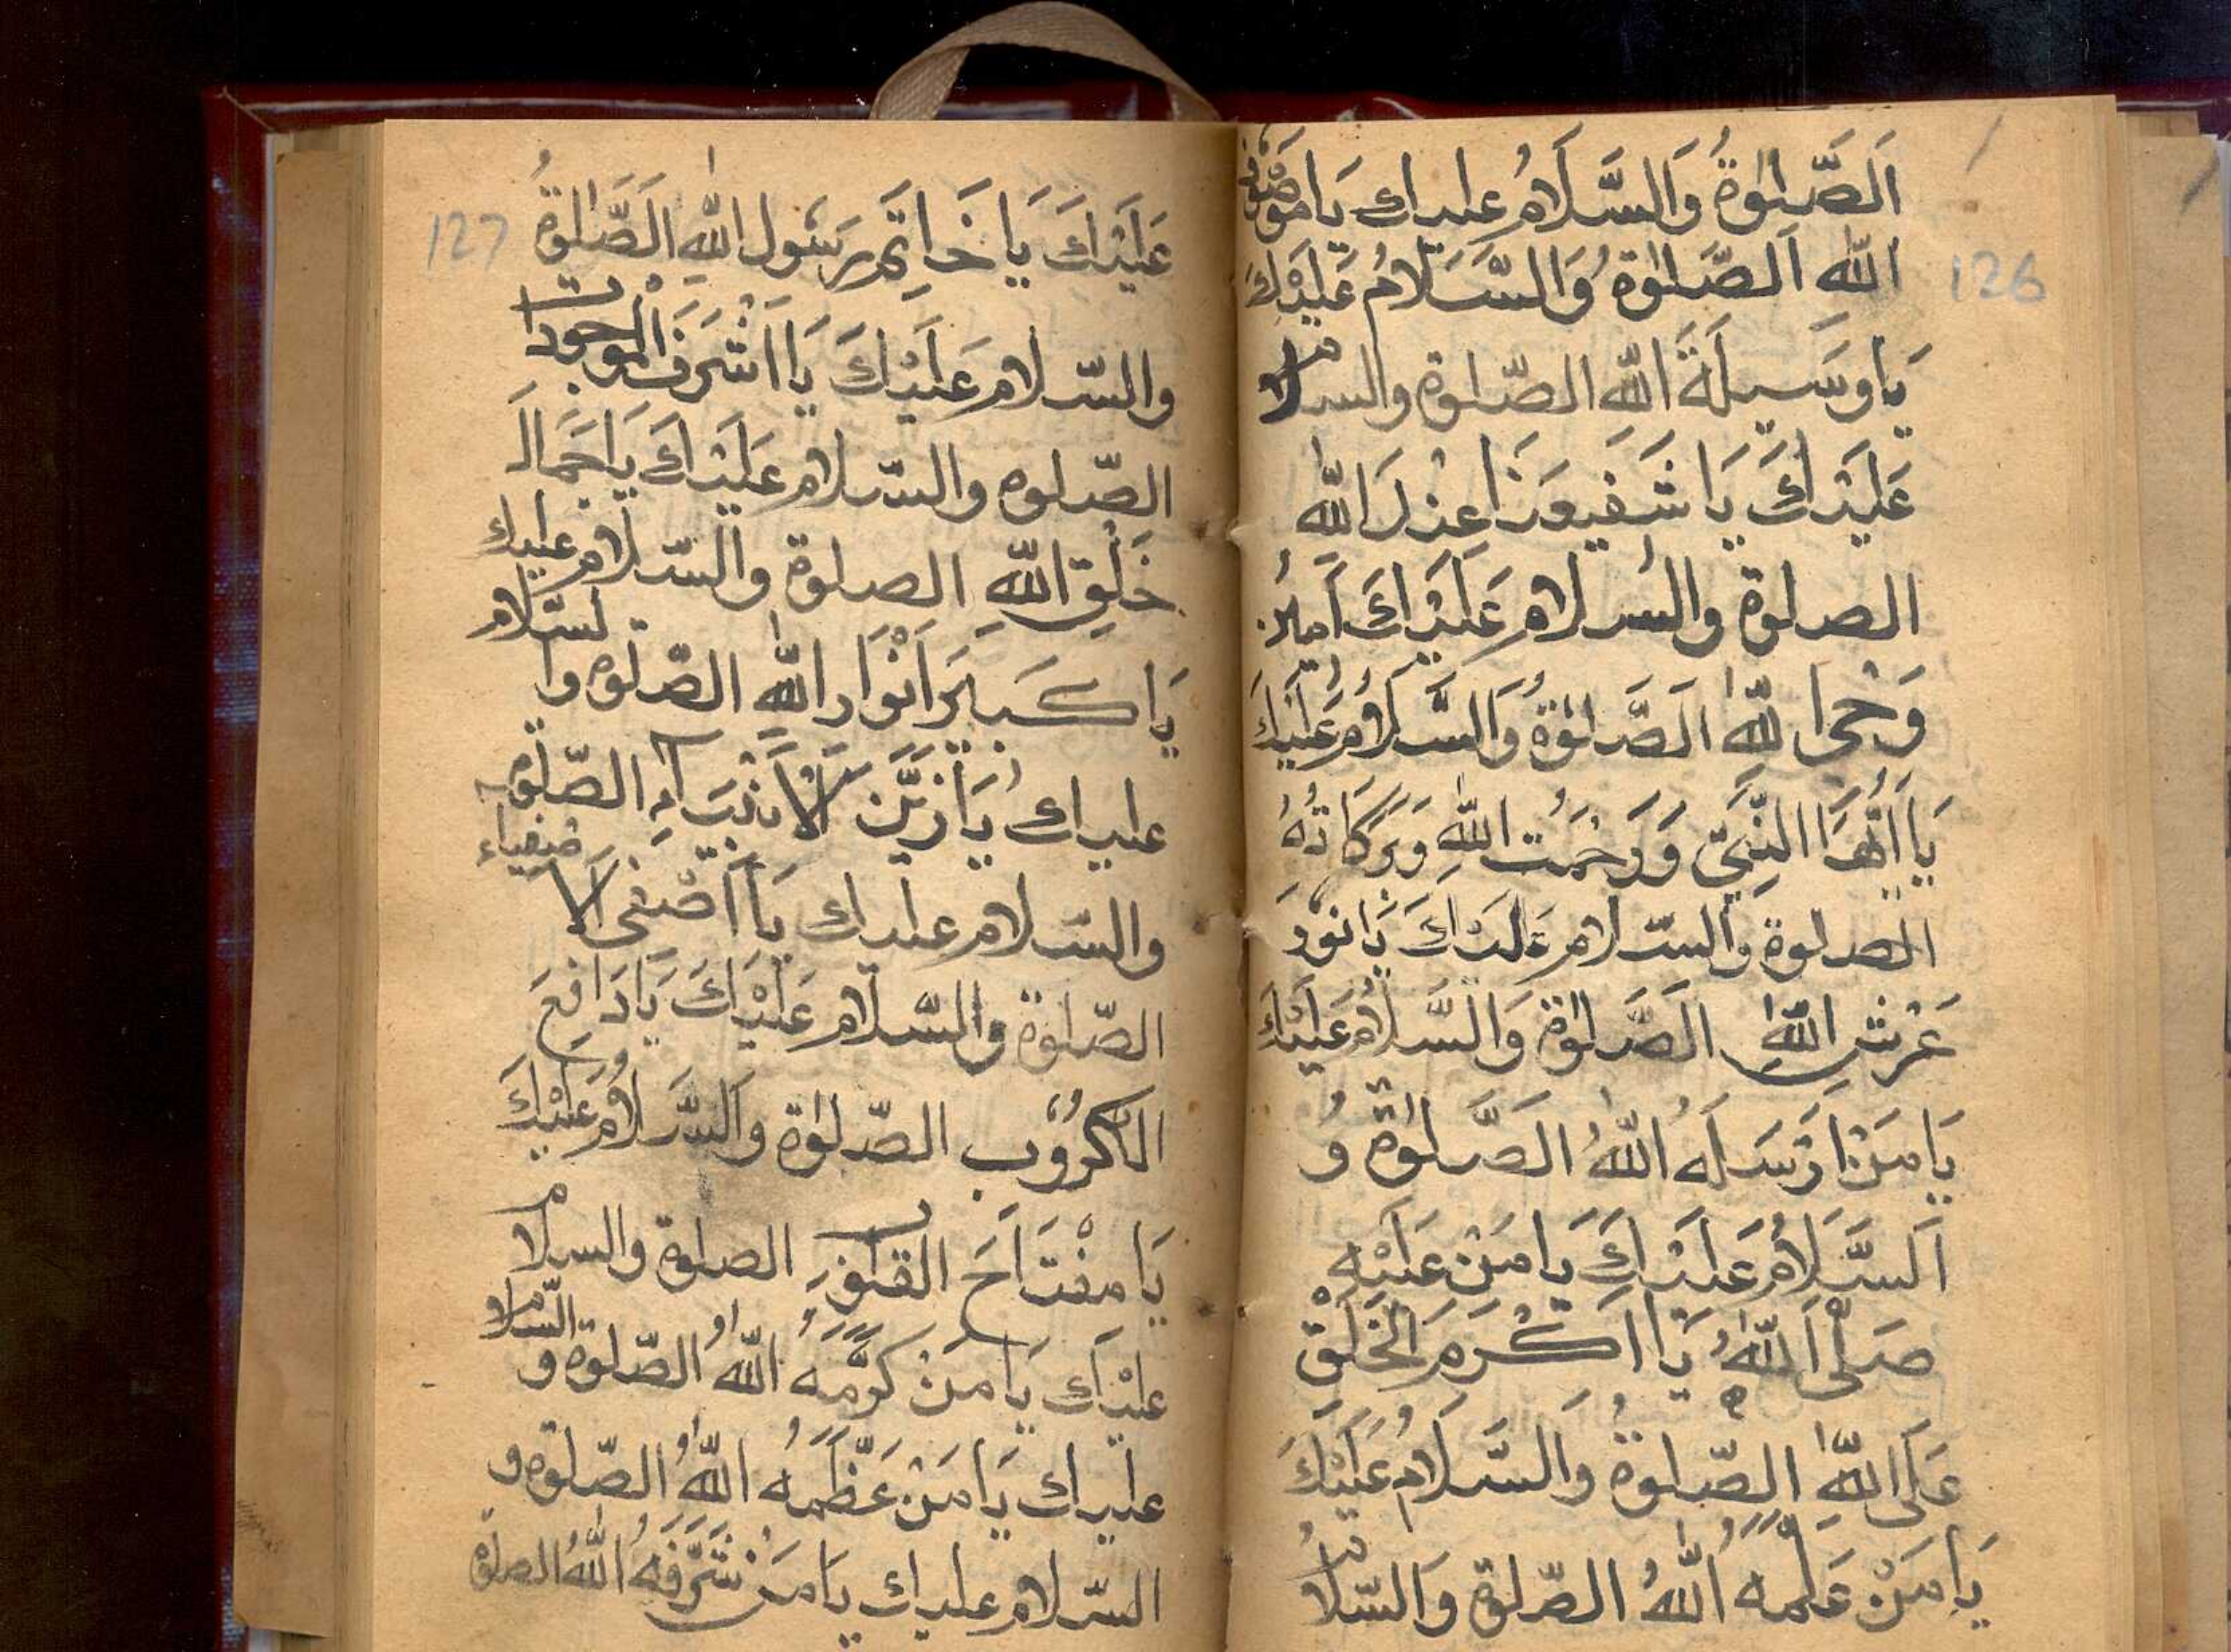 اَلصَّلٰوةُ وَالسَّلَامُ عليك يَا
اللّٰهِ اَلصَّلٰوةُ وَالسَّلَامُ عَلَيْكَ
يَا وَسِيلَةَ اللّٰهِ الصّلوة والسلام
عَلَيْكَ يَا شَفِيعَنَا عِنْدَ اللّٰه
الصلوة والسلام عَلَيْكَ اَمِينَ
وَحْىِ اللّٰهِ اَلصَّلٰوةُ وَالسَّلَامُ عَلَيْكَ
يَا اَيُّهَا النَّبِىّ وَرَحْمَتُ اللّٰهِ وَبَرَكَاتُهُ
الصلوة والسّلام عَلَيْكَ يَا نُورَ
عَرْشِ اللّٰهِ الصَّلٰوة وَالسَّلَامُ عَلَيْكَ
يَا مَنْ اَرْسَلَهُ اللّٰهُ الصَّلٰوةُ وَ
اَلسَّلَامُ عَلَيْكَ يا مَنْ عَلَيْهِ
صَلَّى اللّٰهُ يَا اَكْرَمَ الْخَلْقِ
عَلَى اللّٰهِ الصّلوةُ وَالسَّلَامُ عَلَيْكَ
يَا مَنْ عَلَّمَهُ اللّٰهُ الصّلوة وَالسّلامُ
126
عَلَيْكَ يَا خَاتِمَ رسُول اللّٰهِ اَلصَّلٰوةُ
127
والسّلام عَلَيْكَ يَا اَشْرَفَ الْموجودات
الصّلوه والسّلام عَلَيْكَ يَا جَمَالَ
خَلْقِ اللّٰهِ الصلوة والسّلام عليك
يَا كَبِيرَ اَنْوَارِ اللّٰهِ الصّلوه والسّلام
عليك يَا زَيْنَ الْاَنْبِيَاءِ الصّلوة
والسّلام عليك يَا اَصْفَى الْاَصْفِيَاء
الصّلوة والسّلام عَلَيْكَ يَا دَافِعَ
الْكُرُوبِ الصّلوة وَالسَّلَامُ عَلَيْكَ
يَا مِفْتَاحَ القلوبِ الصلوة والسلام
عَلَيْكَ يَا مَنْ كَرَّمَهُ اللّٰهُ الصّلوة والسّلام
عليك يَا مَنْ عَظَّمَهُ اللّٰهُ الصّلوة و
السّلام عليك يَا مَنْ شَرَّفَهُ اللّٰهُ الصلوة